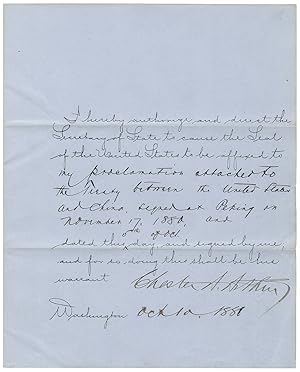 I hereby authorize and direct the
Secretary of State to cause the Seal
of the United States to be affixed to
my proclamation attached to
the Treaty between the United States
and China, signed at Peking on
November 17, 1880, and
dated this day, and signed by me,
and for so doing this shall be his
warrant.
Chester A. Arthur
Washington Oct. 10, 1881